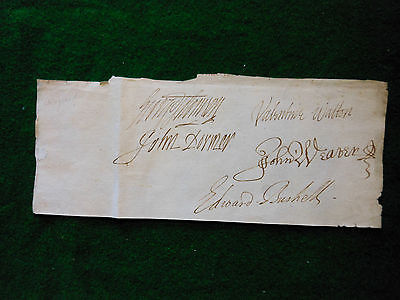 Valentine Walton
John Dormer
John Weaver
Edward Bushell